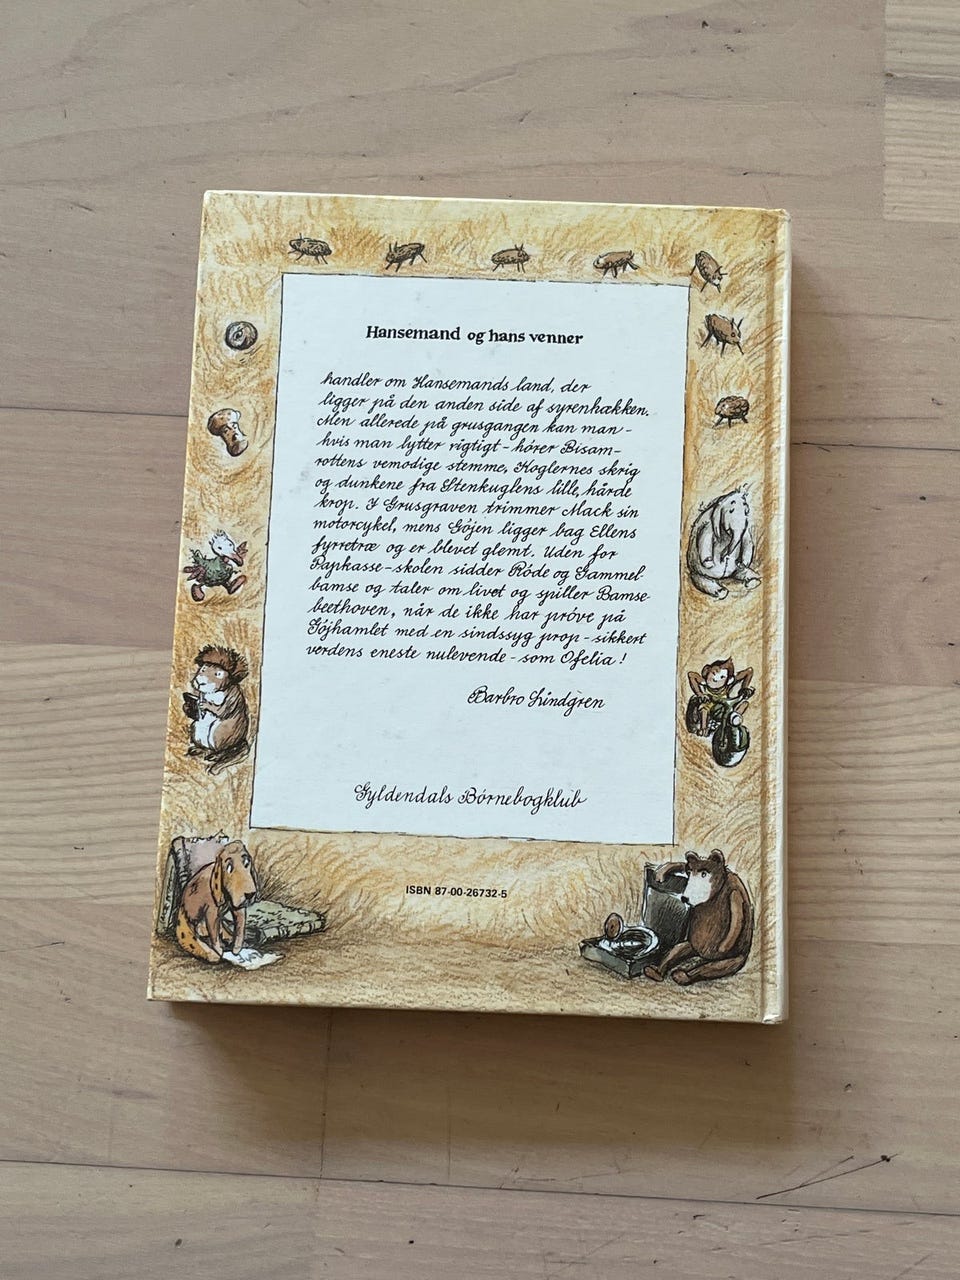 Hansemand og hans venner
handler om Hansemands land, der
ligger på den anden side af syrenhækken.
Men allerede på grusgangen kan man -
hvis man lytter rigtigt - hører Bisam-
rottens vemodige stemme, Koglernes skrig
og dunkene fra Stenkuglens lille, hårde
krop. I Grusgraven trimmer Mack sin
motorcykel, mens Gøjen ligger bag Ellens
fyrretræ og er blevet glemt. Uden for
Papkasse-skolen sidder Røde og Gammel-
bamse og taler om livet og spiller Bamse-
beethoven, når de ikke har prøve på
Gøjhamlet med en sindssyg prop - sikkert
verdens eneste nulevende - som Ofelia!
Barbro Lindgren
Gyldendals Børnebogklub
ISBN 87-00-26732-5